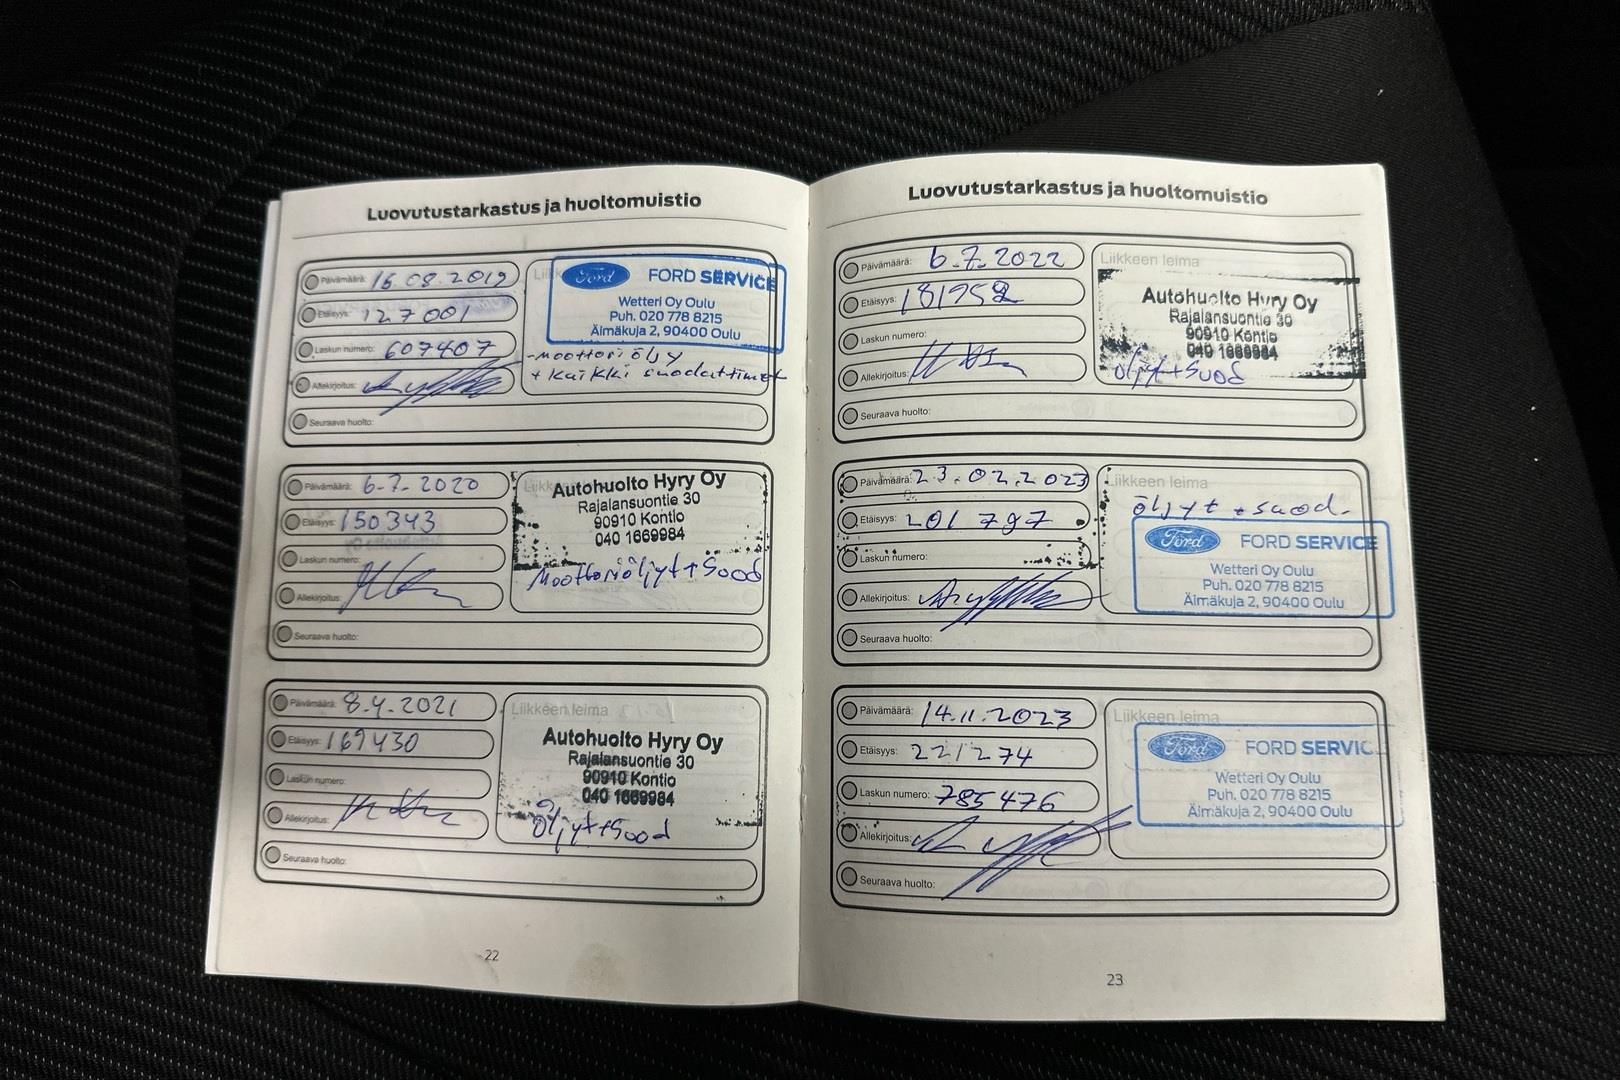 Luovutustarkastus ja huoltomuistio
Päivämäärä: 16.08.2019
Etäisyys: 127001
Laskun numero: 607407
Allekirjoitus:
Seuraava huolto:
Ford FORD SERVICE
Wetteri Oy Oulu
Puh. 020 778 8215
Äimäkuja 2, 90400 Oulu
-moottoriöljy
+ kaikki suodattimet
Päivämäärä: 6-7-2020
Etäisyys: 150343
Laskun numero:
Allekirjoitus:
Seuraava huolto:
Autohuolto Hyry Oy
Rajalansuontie 30
90910 Kontio
040 1669984
Moottoriöljyt+Suod
Päivämäärä: 8-4-2021
Etäisyys: 169430
Laskun numero:
Allekirjoitus:
Seuraava huolto:
Liikkeen leima
Autohuolto Hyry Oy
Rajalansuontie 30
90910 Kontio
040 1669984
Öljyt+Suod
22
Luovutustarkastus ja huoltomuistio
Päivämäärä: 6-7-2022
Etäisyys: 181952
Laskun numero:
Allekirjoitus:
Seuraava huolto:
Liikkeen leima
Autohuolto Hyry Oy
Rajalansuontie 30
90910 Kontio
040 1669984
Öljyt+Suod
Päivämäärä: 23.02.2023
Etäisyys: 201797
Laskun numero:
Allekirjoitus:
Seuraava huolto:
Liikkeen leima
öljyt + suod-
Ford FORD SERVICE
Wetteri Oy Oulu
Puh. 020 778 8215
Äimäkuja 2, 90400 Oulu
Päivämäärä: 14.11.2023
Etäisyys: 221274
Laskun numero: 785476
Allekirjoitus:
Seuraava huolto:
Liikkeen leima
Ford FORD SERVIC
Wetteri Oy Oulu
Puh. 020 778 8215
Äimäkuja 2, 90400 Oulu
23